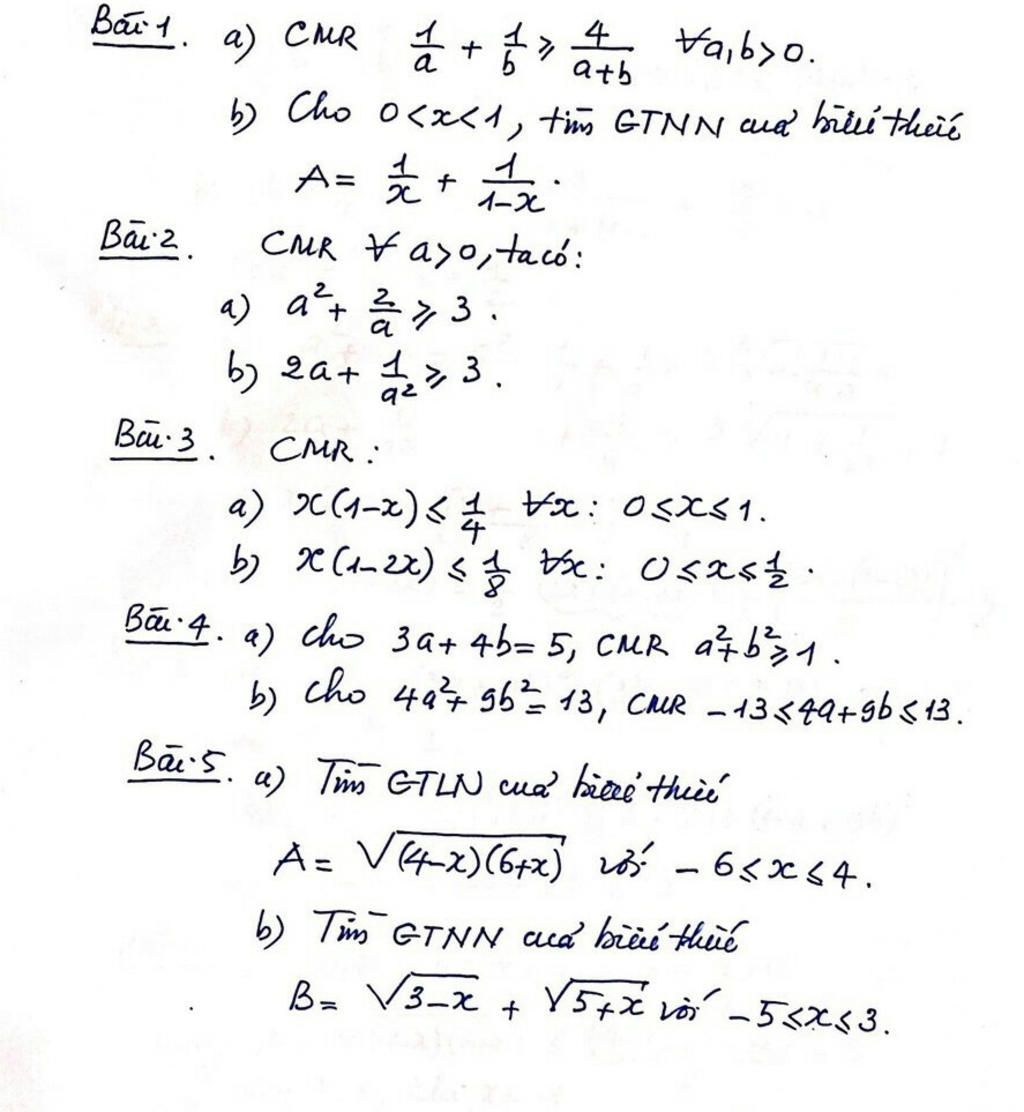 Bài 1. a) CMR 1/a + 1/b ≥ 4/(a+b) ∀a,b>0.
b) Cho 0<x<1, tìm GTNN của biểu thức
A = 1/x + 1/(1-x).
Bài 2. CMR ∀ a>0, ta có:
a) a² + 2/a ≥ 3.
b) 2a + 1/a² ≥ 3.
Bài 3. CMR:
a) x(1-x) ≤ 1/4 ∀x: 0≤x≤1.
b) x(1-2x) ≤ 1/8 ∀x: 0≤x≤1/2.
Bài 4. a) Cho 3a+4b=5, CMR a²+b²≥1.
b) Cho 4a²+9b²=13, CMR -13≤4a+9b≤13.
Bài 5. a) Tìm GTLN của biểu thức
A = √((4-x)(6+x)) với -6≤x≤4.
b) Tìm GTNN của biểu thức
B = √(3-x) + √(5+x) với -5≤x≤3.